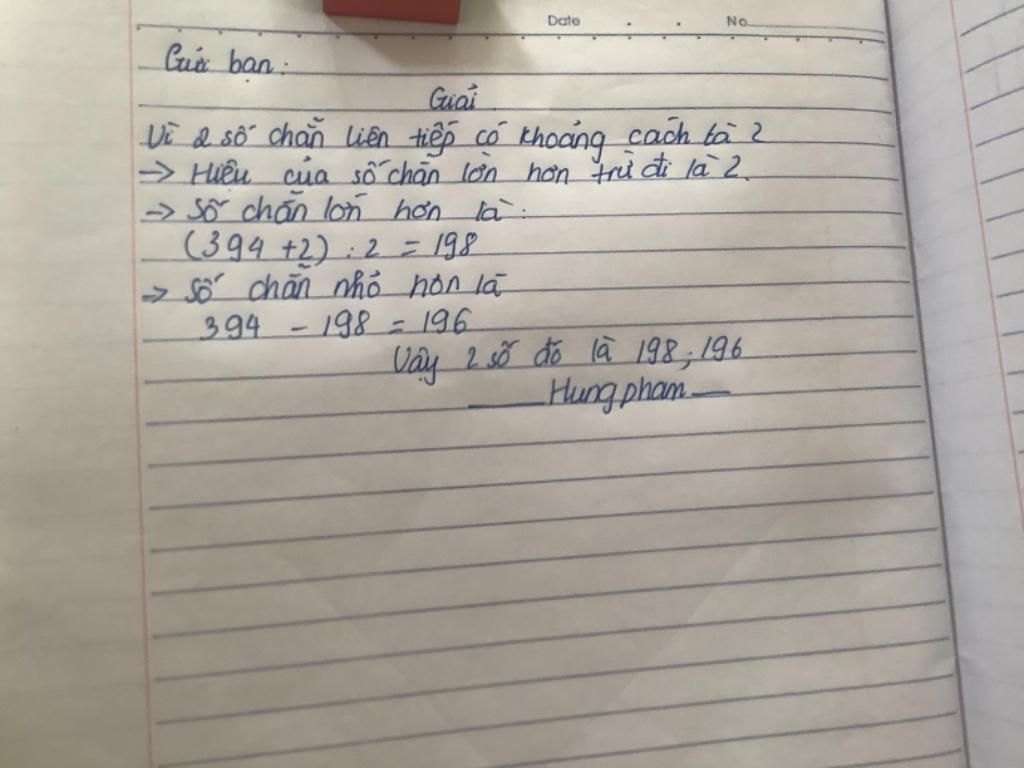 Date . . No
Gửi bạn:
Giải
Vì 2 số chẵn liên tiếp có khoảng cách là 2
-> Hiệu của số chẵn lớn hơn trừ đi là 2.
-> Số chẵn lớn hơn là:
(394 +2) : 2 = 198
=> Số chẵn nhỏ hơn là
394 - 198 = 196
Vậy 2 số đó là 198; 196
Hungpham